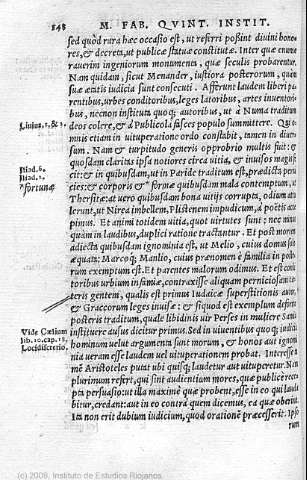 148 M. FAB. QVINT. INSTIT.
sed quòd rara hæc occasio est, ut referri posint diuini honores, & decreta, ut publicæ statuæ constitutæ. Inter quæ enumerauerim ingeniorum monumenta, quæ seculis probarentur.
Nam quidam, sicut Menander, iustiora posterorum, quàm
suæ ætatis iudicia sunt consecuti. Afferunt laudem liberi parentibus, urbes conditoribus, leges latoribus, artes inuentoribus, necnon instituta quoq; autoribus, ut à Numa traditum
Liuius.1.&3.
deos colere, & à Publicola fasces populo summittere.
mus etiam in uituperatione ordo constabit, tamen in diuersum. Nam & turpitudo generis opprobrio multis fuit: &
quosdam claritas ipsa notiores circa uitia, & inuisos magis
Iliad.6.
fecit: & in quibusdam, ut in Paride traditum est, prædicta pernicies:
Iliad.2.
& corporis &
*fortunæ
quibusdam mala contemptum, ut
Thersitæ: at uero quibusdam bona uitijs corrupta, odium attulerunt, ut Nirea imbellem, Plistenem impudicum, à poetis accepimus. Et animi totidem uitia, quot uirtutes sunt: nec minus
quàm in laudibus, duplici ratione tractantur. Et post mortem
adiecta quibusdam ignominia est, ut Melio, cuius domus solo
æquata: Marcoq; Manlio, cuius prænomen è familia in posterum exemptum est. Et parentes malorum odimus. Et est conditoribus urbium infame, contraxisse aliquam perniciosam cæteris gentem, qualis est primus Iudaicæ superstitionis autor:
& Graccorum leges inuisæ: & si quod est exemplum deforme
posteris traditum, quale libidinis uir Perses in muliere Samia
Vide Cælium
lib.10.cap.18.
Loci discrimen
instituere ausus dicitur primus. Sed in uiuentibus quoq; iudicia
hominum uelut argumenta sunt morum, & honos aut ignominia ueram esse laudem uel uituperationem probat. Interesse tamen Aristoteles putat ubi quisq; laudetur aut uituperetur. Nam
plurimum refert, qui sint audientium mores, quæ publicè recepta persuasio: ut illa maximè quæ probent, esse in eo qui laudabitur, credant: aut in eo contra quem dicemus, ea quæ oderint.
Ita non erit dubium iudicium, quod orationem præcesserit. Ipsorum
(c) 2009, Instituto de Estudios Riojanos